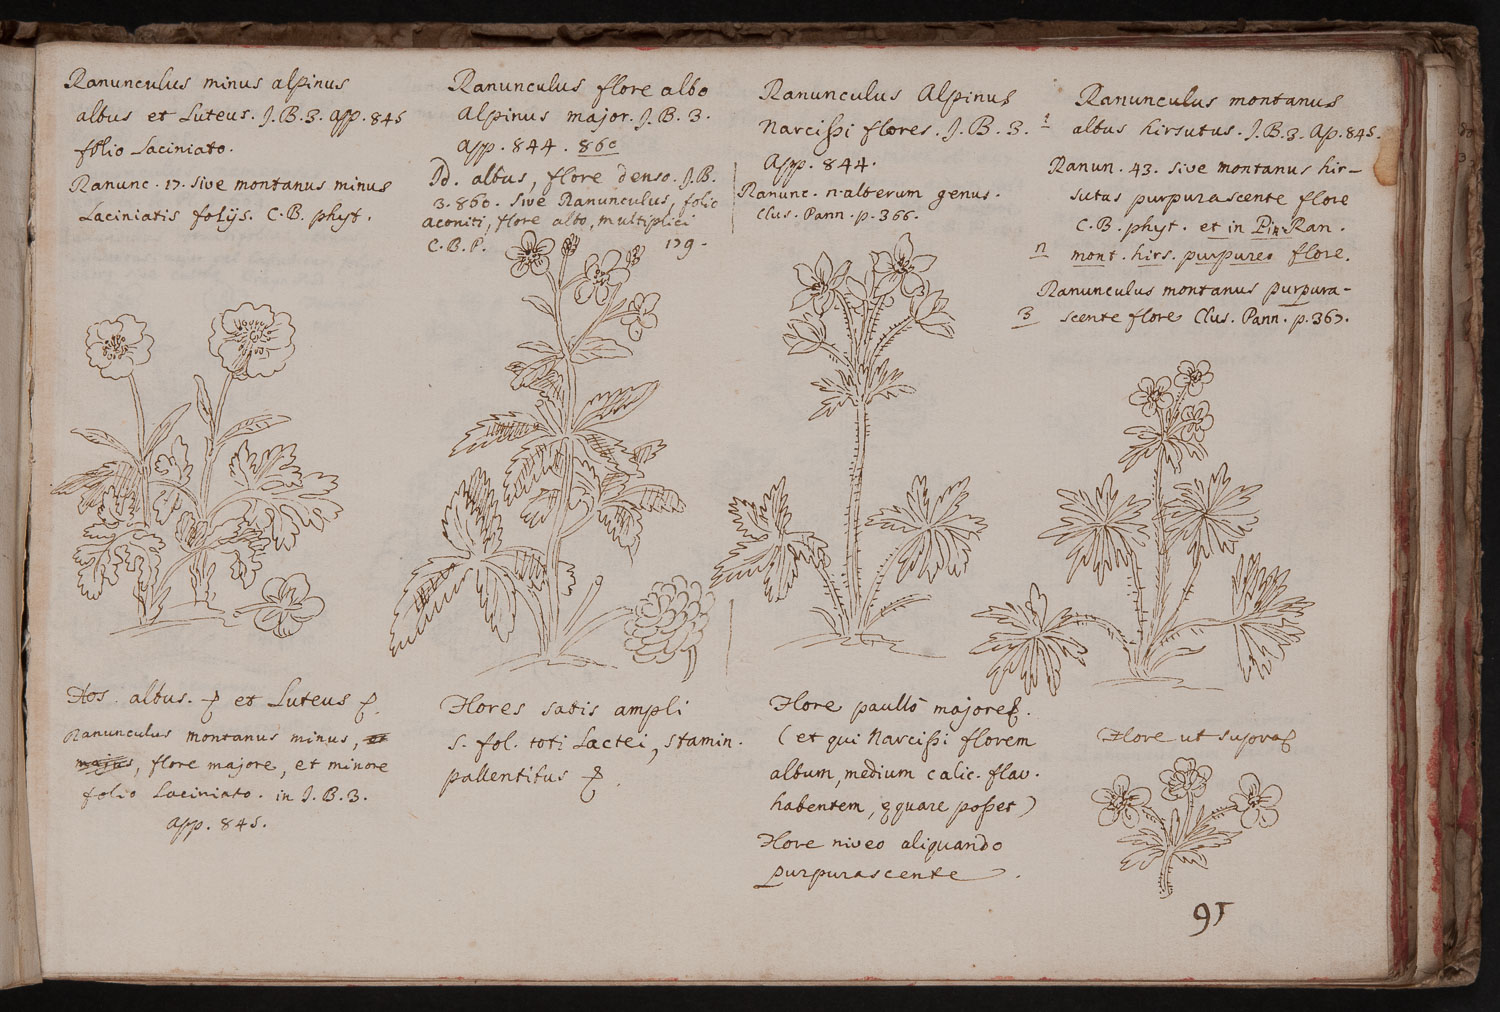 Ranunculus minus alpinus
albus et Luteus. J.B.3. app. 845
folio Laciniato.
Ranunc. 17. sive montanus minus
Laciniatis folijs. C.B. phyt.
Flos albus. et Luteus
Ranunculus montanus minus, et
majus, flore majore, et minore
folio Laciniato. in J.B.3.
app. 845.
Ranunculus flore albo
Alpinus major. J.B.3.
app. 844. 860
Id. albus, flore denso. J.B.
3. 860. sive Ranunculus, folio
aconiti, flore albo, multiplici
C.B.P. 179.
Flores satis ampli
s. fol. toti Lactei, stamin.
pallentibus
Ranunculus Alpinus
Narcissi flores. J.B.3.
App. 844.
Ranunc. n. alterum genus.
Clus. Pann. p. 366.
Flore paullò majore
(et qui Narcissi florem
album, medium calic. flav.
habentem, æquare posset)
Flore niveo aliquando
purpurascente.
Ranunculus montanus
1 albus hirsutus. J.B.3. Ap. 845.
Ranun. 43. sive montanus hir-
sutus purpurascente flore
C.B. phyt. et in Pin. Ran.
2 mont. hirs. purpureo flore.
Ranunculus montanus purpura-
3 scente flore Clus. Pann. p. 367.
Flore ut supra
91